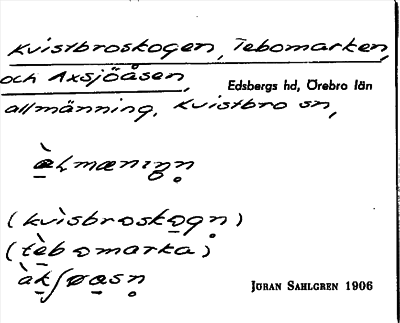 Kvistbroskogen, Tebomarken,
och Axsjöåsen, Edsbergs hd, Örebro län
allmänning, Kvistbro sn,
(kvìsbroskogn̥)
(tèbomarka)
JÖRAN SAHLGREN 1906